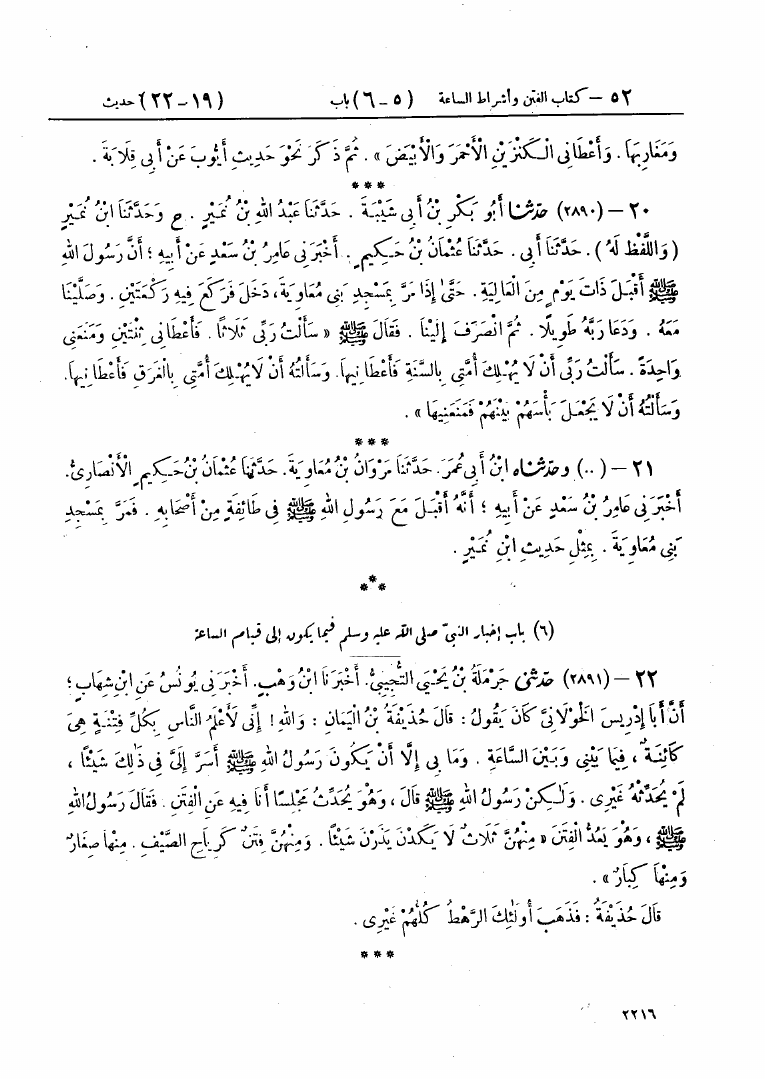 ٥٢ – كتاب الفتن وأشراط الساعة (٥ – ٦) باب (١٩ – ٢٢) حديث
وَمَغَارِبَهَا . وَأَعْطَانِى الْكَنْزَيْنِ الْأَحْمَرَ وَالْأَبْيَضَ » . ثُمَّ ذَكَرَ نَحْوَ حَدِيثِ أَيُّوبَ عَنْ أَبِى قِلَابَةَ .
***
٢٠ – (٢٨٩٠) حَدَّثَنَا أَبُو بَكْرِ بْنُ أَبِى شَيْبَةَ . حَدَّثَنَا عَبْدُ اللهِ بْنُ نُمَيْرٍ . ح وَحَدَّثَنَا ابْنُ نُمَيْرٍ
(وَاللَّفْظُ لَهُ) . حَدَّثَنَا أَبِى . حَدَّثَنَا عُثْمَانُ بْنُ حَكِيمٍ . أَخْبَرَنِى عَامِرُ بْنُ سَعْدٍ عَنْ أَبِيهِ ؛ أَنَّ رَسُولَ اللهِ
ﷺ أَقْبَلَ ذَاتَ يَوْمٍ مِنَ الْعَالِيَةِ . حَتَّى إِذَا مَرَّ بِمَسْجِدِ بَنِى مُعَاوِيَةَ ، دَخَلَ فَرَكَعَ فِيهِ رَكْعَتَيْنِ . وَصَلَّيْنَا
مَعَهُ . وَدَعَا رَبَّهُ طَوِيلًا . ثُمَّ انْصَرَفَ إِلَيْنَا . فَقَالَ ﷺ « سَأَلْتُ رَبِّى ثَلَاثًا . فَأَعْطَانِى ثِنْتَيْنِ وَمَنَعَنِى
وَاحِدَةً . سَأَلْتُ رَبِّى أَنْ لَا يُهْلِكَ أُمَّتِى بِالسَّنَةِ فَأَعْطَانِيهَا. وَسَأَلْتُهُ أَنْ لَا يُهْلِكَ أُمَّتِى بِالْغَرَقِ فَأَعْطَانِيهَا.
وَسَأَلْتُهُ أَنْ لَا يَجْعَلَ بَأْسَهُمْ بَيْنَهُمْ فَمَنَعَنِيهَا » .
***
٢١ – (..) وحَدَّثَنَاه ابْنُ أَبِى عُمَرَ. حَدَّثَنَا مَرْوَانُ بْنُ مُعَاوِيَةَ. حَدَّثَنَا عُثْمَانُ بْنُ حَكِيمٍ الْأَنْصَارِىُّ.
أَخْبَرَنِى عَامِرُ بْنُ سَعْدٍ عَنْ أَبِيهِ ؛ أَنَّهُ أَقْبَلَ مَعَ رَسُولِ اللهِ ﷺ فِى طَائِفَةٍ مِنْ أَصْحَابِهِ . فَمَرَّ بِمَسْجِدِ
بَنِى مُعَاوِيَةَ . بِمِثْلِ حَدِيثِ ابْنِ نُمَيْرٍ .
***
(٦) باب إخبار النبىّ صلى الله عليه وسلم فيما يكون إلى قيام الساعة
٢٢ – (٢٨٩١) حَدَّثَنِى حَرْمَلَةُ بْنُ يَحْيَى التُّجِيبِىُّ. أَخْبَرَنَا ابْنُ وَهْبٍ. أَخْبَرَنِى يُونُسُ عَنِ ابْنِ شِهَابٍ ؛
أَنَّ أَبَا إِدْرِيسَ الْخَوْلَانِىَّ كَانَ يَقُولُ : قَالَ حُذَيْفَةُ بْنُ الْيَمَانِ : وَاللهِ ! إِنِّى لَأَعْلَمُ النَّاسِ بِكُلِّ فِتْنَةٍ هِىَ
كَائِنَةٌ ، فِيمَا بَيْنِى وَبَيْنَ السَّاعَةِ . وَمَا بِى إِلَّا أَنْ يَكُونَ رَسُولُ اللهِ ﷺ أَسَرَّ إِلَىَّ فِى ذَلِكَ شَيْئًا ،
لَمْ يُحَدِّثْهُ غَيْرِى . وَلَكِنْ رَسُولُ اللهِ ﷺ قَالَ ، وَهُوَ يُحَدِّثُ مَجْلِسًا أَنَا فِيهِ عَنِ الْفِتَنِ . فَقَالَ رَسُولُ اللهِ
ﷺ ، وَهُوَ يَعُدُّ الْفِتَنَ « مِنْهُنَّ ثَلَاثٌ لَا يَكَدْنَ يَذَرْنَ شَيْئًا . وَمِنْهُنَّ فِتَنٌ كَرِيَاحِ الصَّيْفِ . مِنْهَا صِغَارٌ
وَمِنْهَا كِبَارٌ » .
قَالَ حُذَيْفَةُ : فَذَهَبَ أُولَئِكَ الرَّهْطُ كُلُّهُمْ غَيْرِى .
***
٢٢١٦